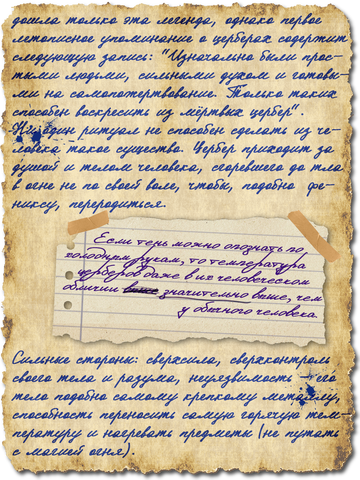 дошла только эта легенда, однако первое
летописное упоминание о церберах содержит
следующую запись: "Изначально были прос-
тыми людьми, сильными духом и готовы-
ми на самопожертвование. Только таких
способен воскресить из мёртвых цербер".
Ни один ритуал не способен сделать из че-
ловека такое существо. Цербер приходит за
душой и телом человека, сгоревшего до тла
в огне не по своей воле, чтобы, подобно фе-
никсу, переродиться.
Если тень можно опознать по
холодным рукам, то температура
церберов даже в их человеческом
обличии выше значительно выше, чем
у обычного человека.
Сильные стороны: сверхсила, сверхконтроль
своего тела и разума, неуязвимость – его
тело подобно самому крепкому металлу,
способность переносить самую горячую тем-
пературу и нагревать предметы (не путать
с магией огня).